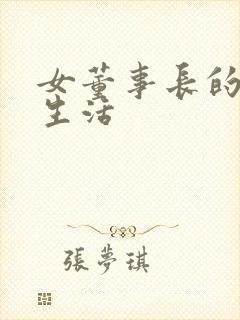 女董事長的
生活
張夢琪